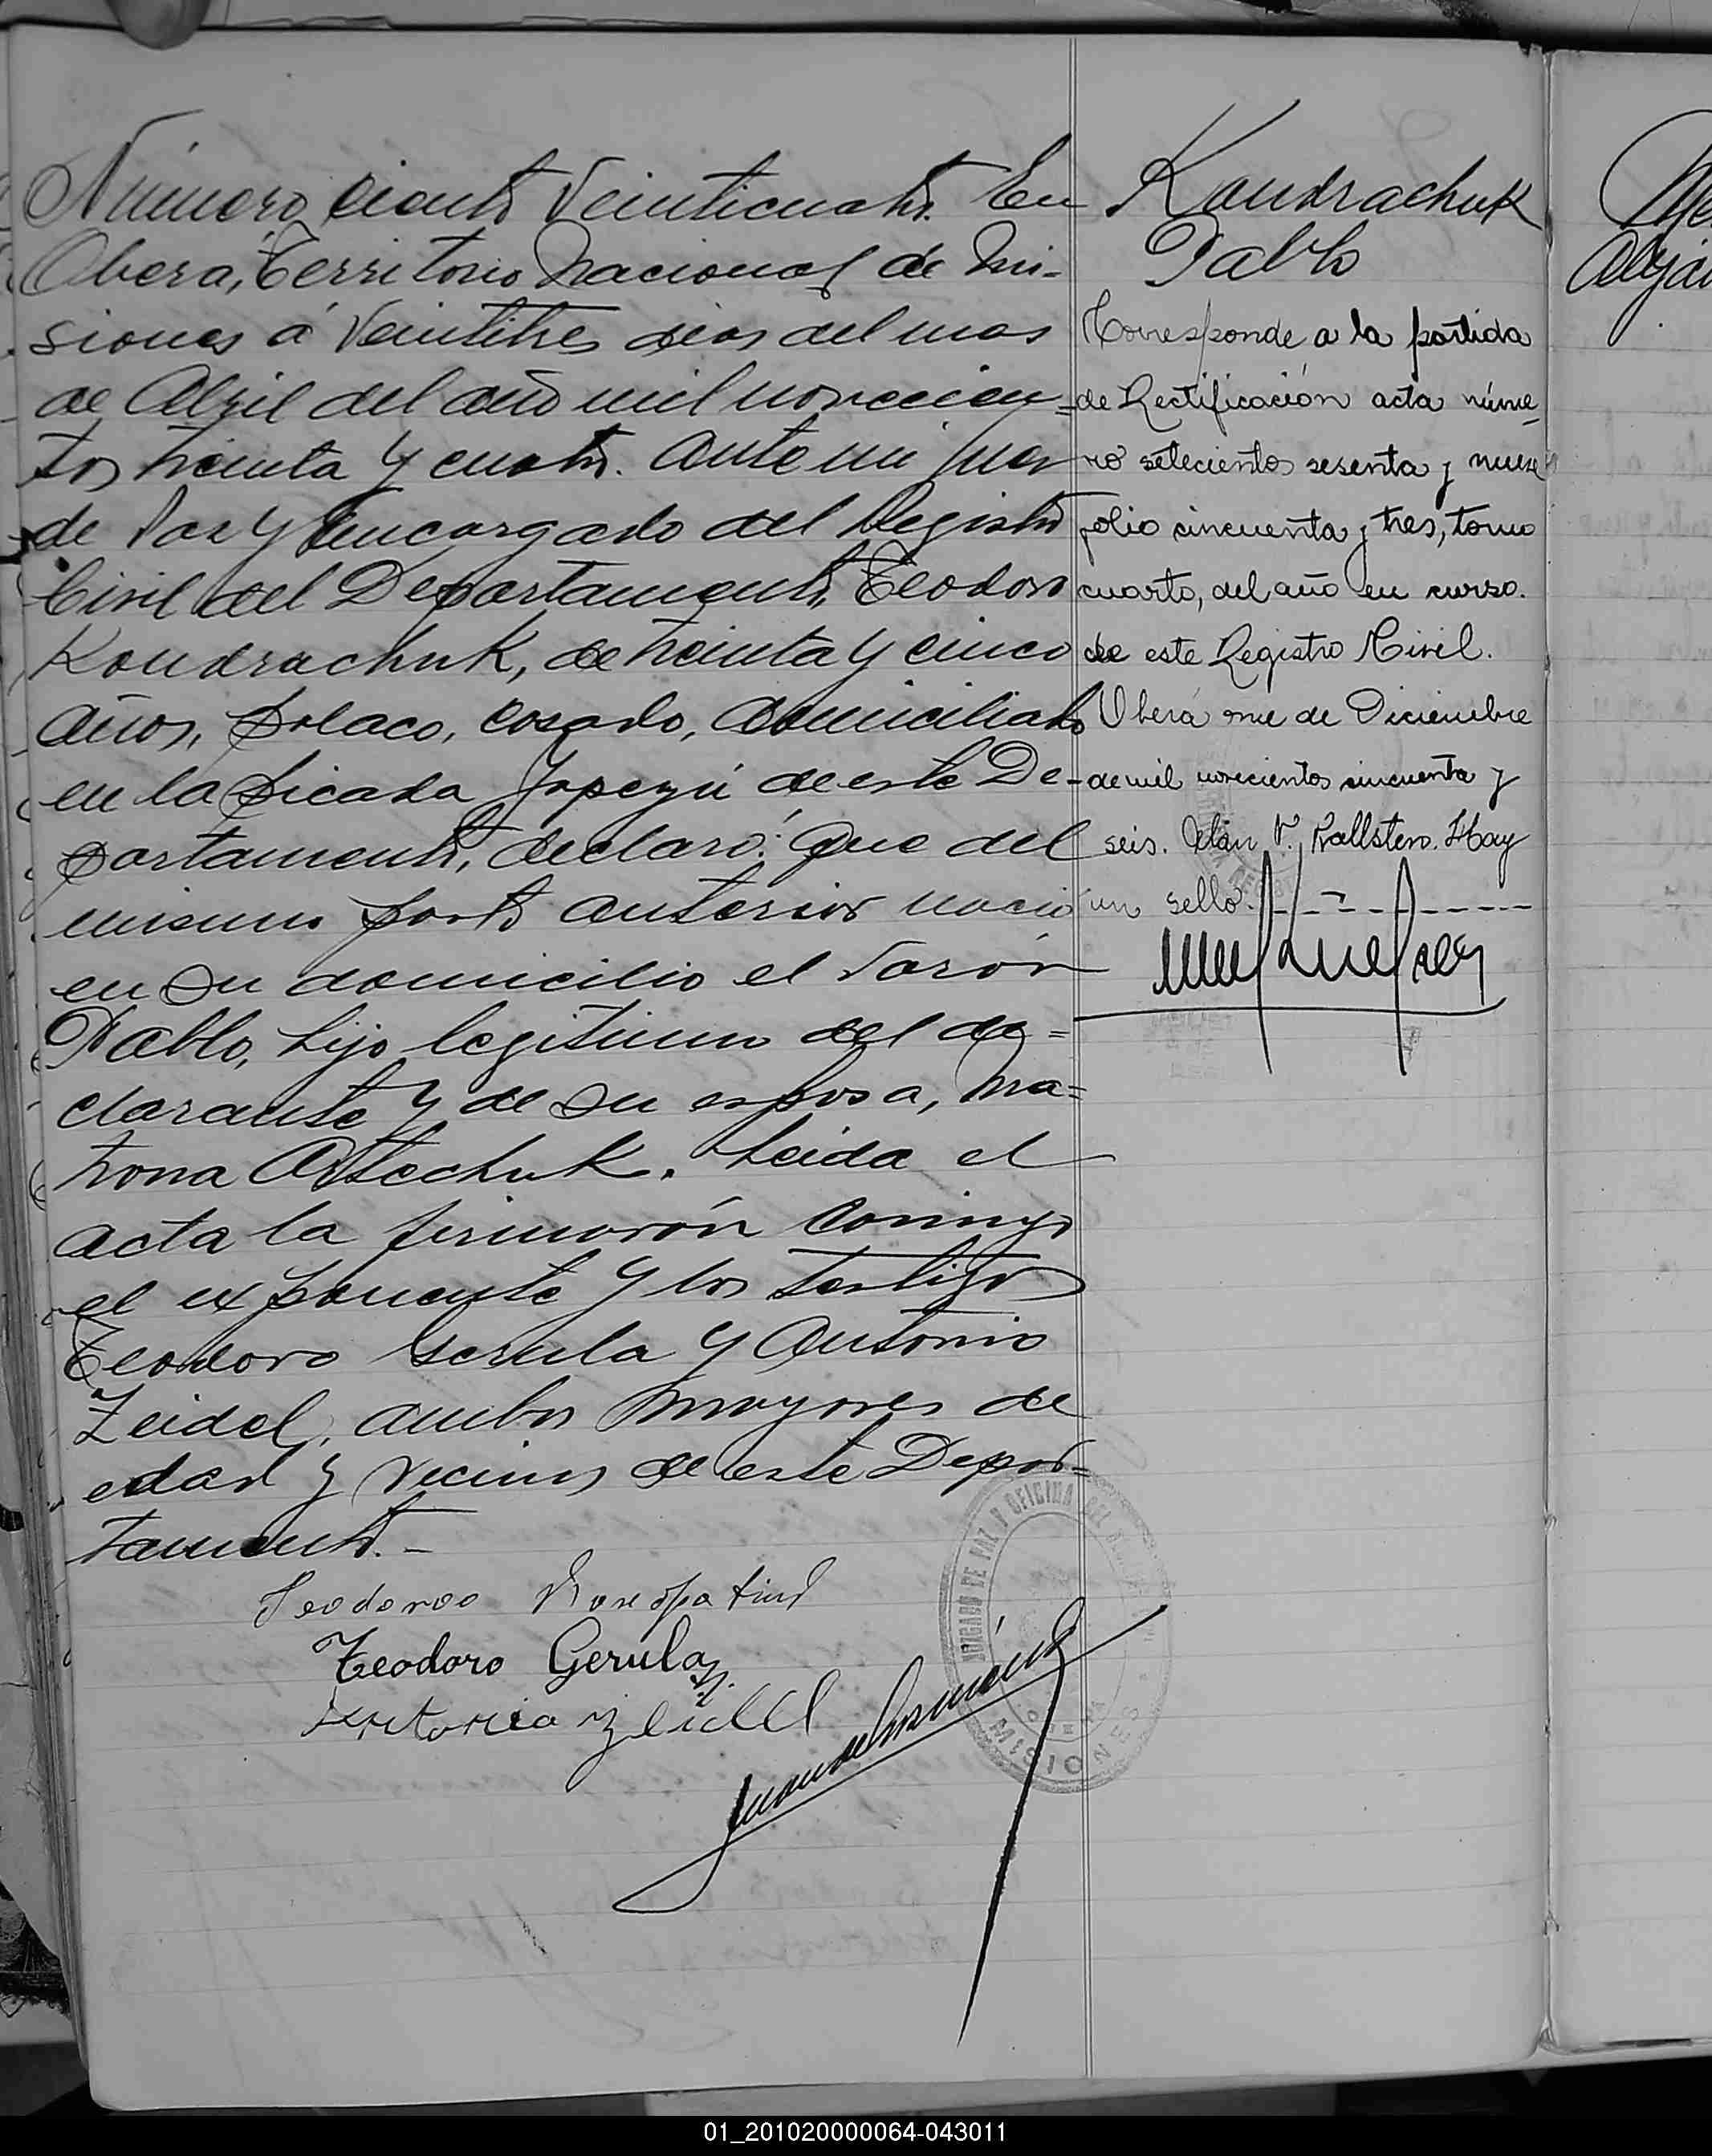 Número ciento Veinticuatro. En
Obera, Territorio Nacional de Mi-
siones á Veintitres dias del mes
de Abril del año mil novecien=
tos treinta y cuatro. Ante mi Juez
de Paz y Encargado del Registro
Civil del Departamento, Teodoro
Kondrachuk, de treinta y cinco
años, polaco, casado, domiciliado
en la picada Yapeyú de este De-
partamento, declaró: Que del
mismo parto anterior nació
en su domicilio el varón
Pablo, hijo legitimo del de=
clarante y de su esposa, Ma=
trona Ostechuk. Leida el
acta la firmarón conmigo
el exponente y los testigos
Teodoro Gerula y Antonio
Zeidel, ambos mayores de
edad y vecinos de este Depar=
tamento.-
Teodoro Gerula
Kondrachuk
Pablo
Corresponde a la partida
de Rectificación acta núme-
ro setecientos sesenta y nueve
folio cincuenta y tres, tomo
cuarto, del año en curso.
de este Registro Civil.
Oberá once de Diciembre
de mil novecientos cincuenta y
seis. V. Kallsten. Hay
un sello.
JUZGADO DE PAZ Y OFICINA DEL
MISIONES
01_201020000064-043011